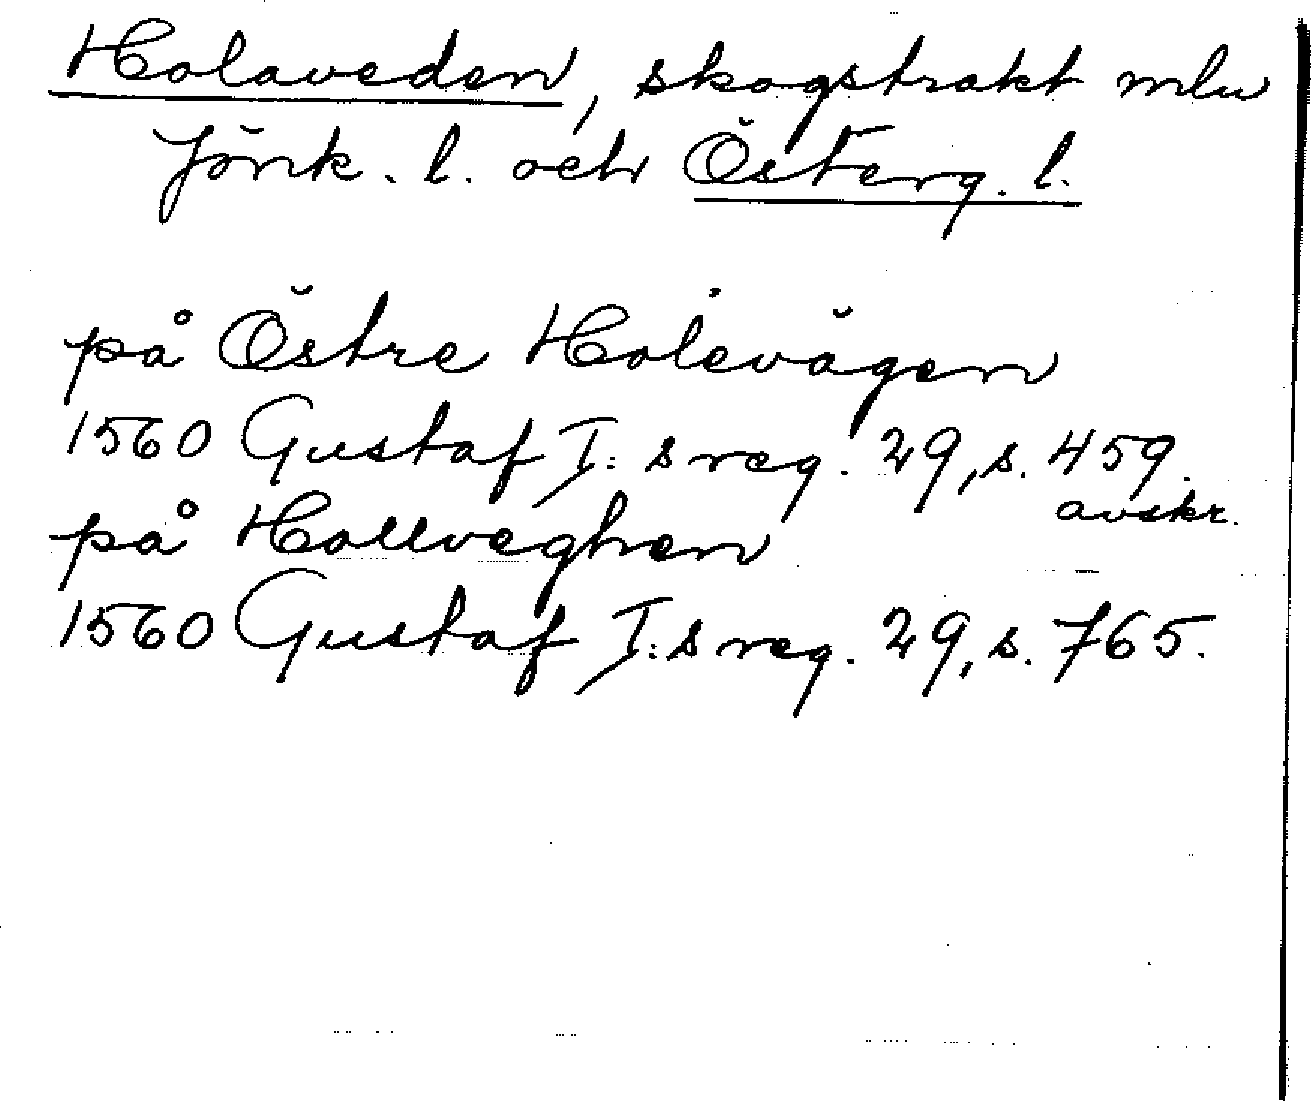 Holaveden, skogstrakt mlu
Jönk. l. och Österg. l.
på Östre Holevägen
1560 Gustaf I:s reg. 29, s. 459.
avskr.
på Hollveghen
1560 Gustaf I:s reg. 29, s. 765.